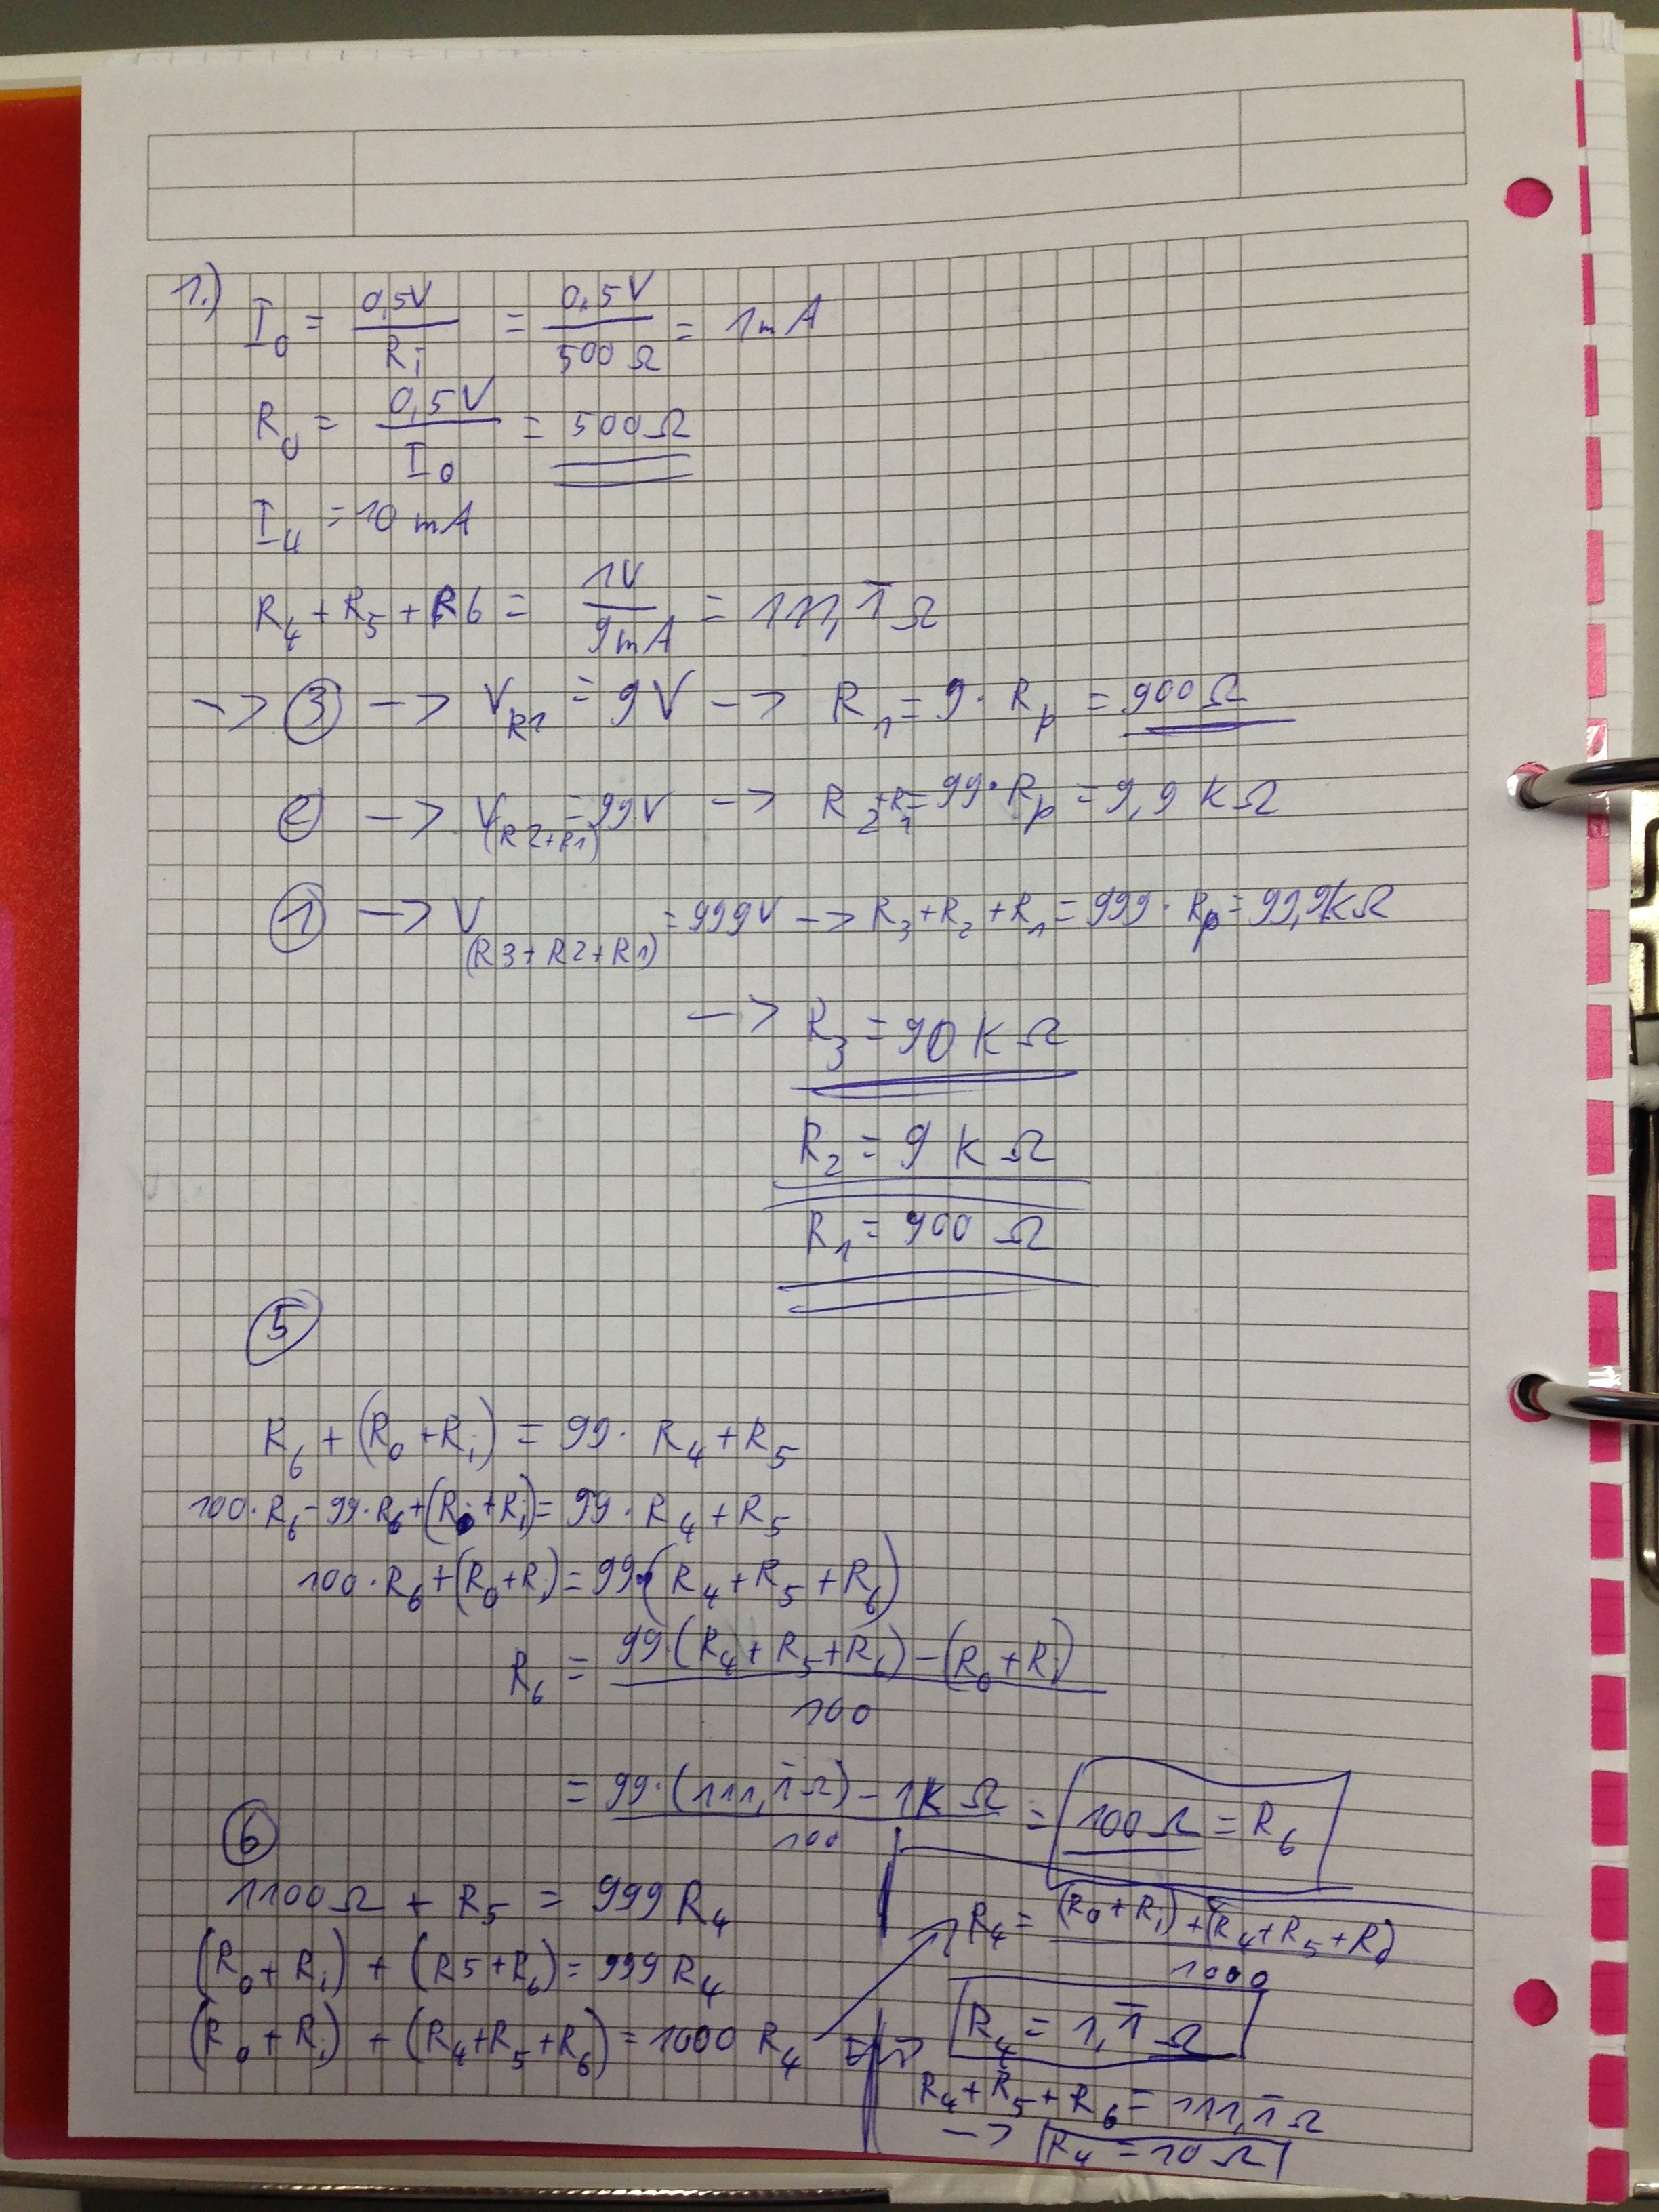 1.) I₀ = 0,5V / Ri = 0,5V / 500Ω = 1mA
R₀ = 0,5V / I₀ = 500Ω
I₄ = 10 mA
R₄ + R₅ + R6 = 1V / 9mA = 111,1̅ Ω
-> ③ -> V_R1 = 9V -> R₁ = 9 · Rp = 900Ω
② -> V_(R2+R1) = 99V -> R₂+R₁ = 99 · Rp = 9,9 kΩ
① -> V_(R3+R2+R1) = 999V -> R₃ + R₂ + R₁ = 999 · Rp = 99,9kΩ
-> R₃ = 90 kΩ
R₂ = 9 kΩ
R₁ = 900 Ω
⑤
R₆ + (R₀ + Ri) = 99 · R₄ + R₅
100 · R₆ - 99 · R₆ + (R₀ + Ri) = 99 · R₄ + R₅
100 · R₆ + (R₀ + Ri) = 99 · (R₄ + R₅ + R₆)
R₆ = 99 · (R₄ + R₅ + R₆) - (R₀ + Ri) / 100
= 99 · (111,1̅ Ω) - 1kΩ / 100 = 100Ω = R₆
⑥
1100Ω + R₅ = 999 R₄
(R₀ + Ri) + (R5 + R₆) = 999 R₄
(R₀ + Ri) + (R₄ + R₅ + R₆) = 1000 R₄
R₄ = (R₀ + Ri) + (R₄ + R₅ + R₆) / 1000
R₄ = 1,1̅ Ω
R₄ + R₅ + R₆ = 111,1̅ Ω
-> R₄ = 10 Ω